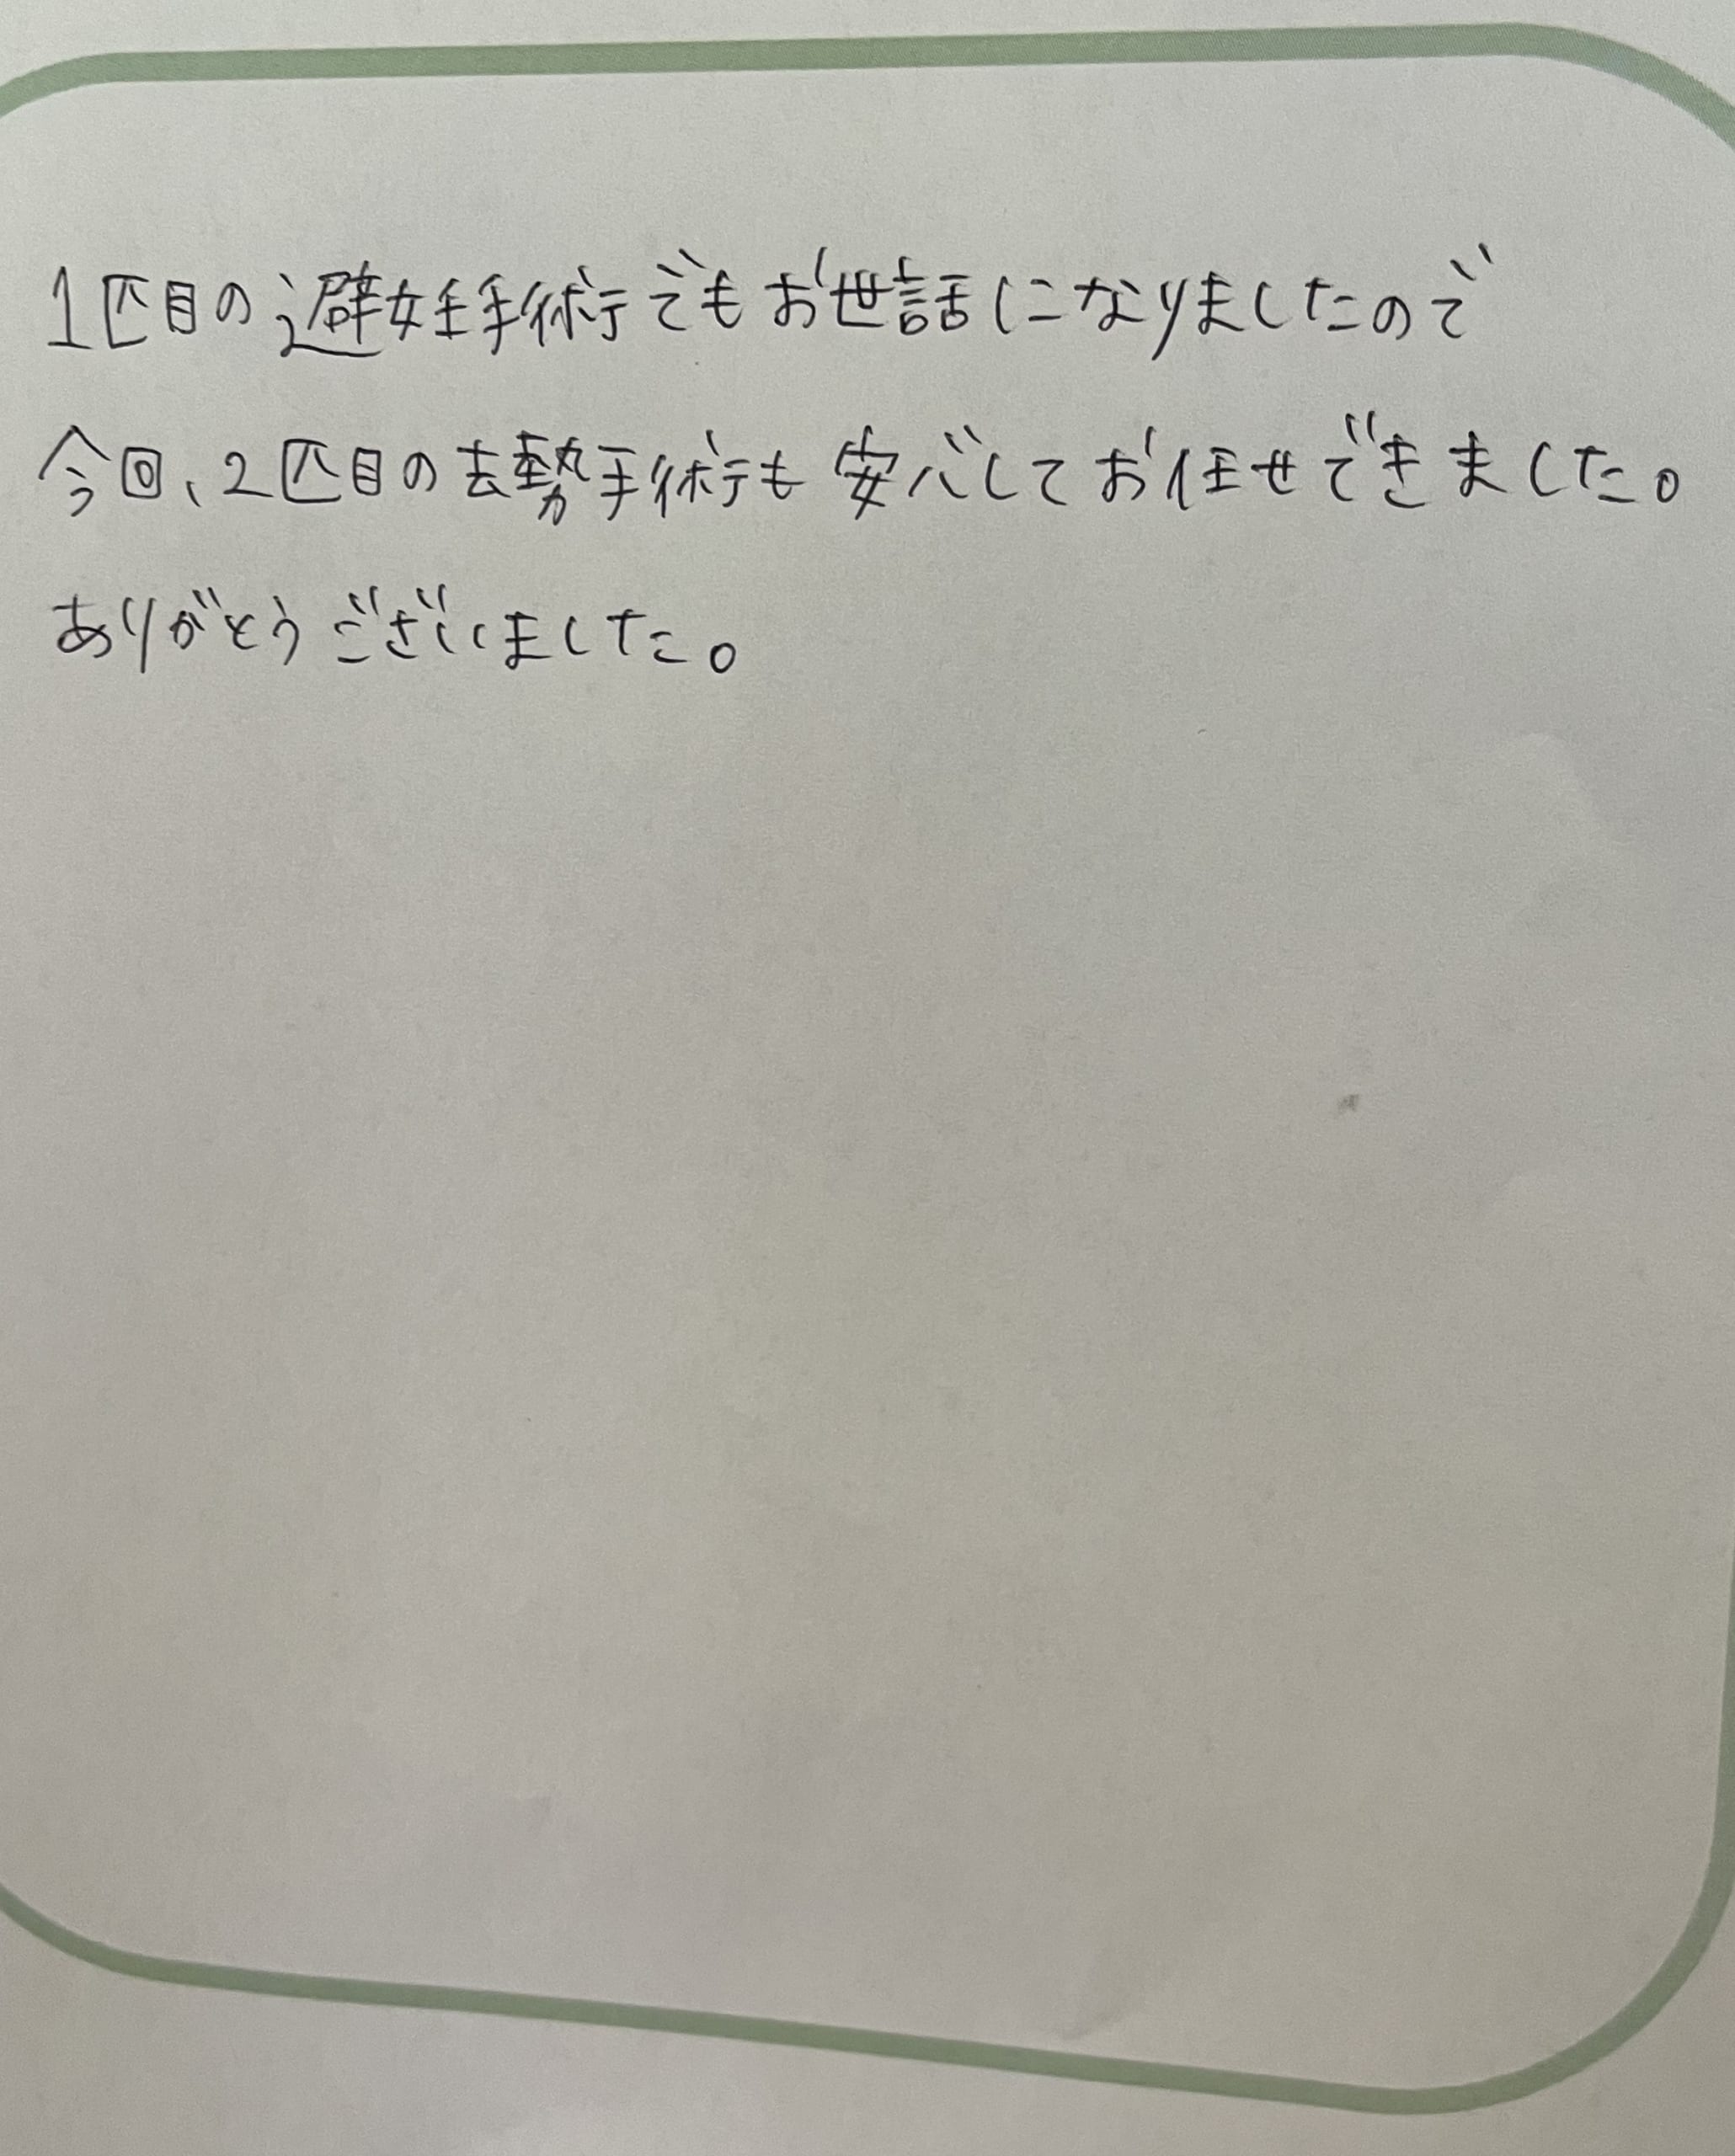 1匹目の避妊手術でもお世話になりましたので
今回、2匹目の去勢手術も安心してお任せできました。
ありがとうございました。